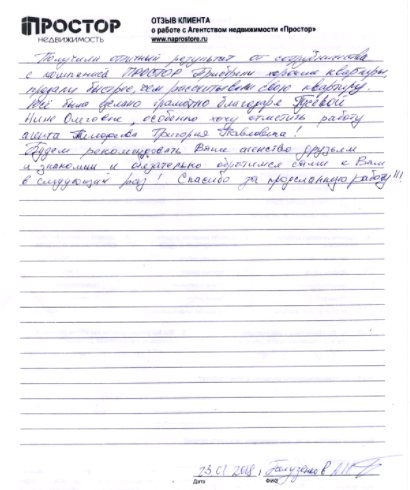 ПРОСТОР
НЕДВИЖИМОСТЬ
ОТЗЫВ КЛИЕНТА
о работе с Агентством недвижимости «Простор»
www.naprostore.ru
Получили отличный результат от сотрудничества
с компанией ПРОСТОР. Приобрели хорошую квартиру
продали быстрее, чем рассчитывали свою квартиру.
Всё было сделано грамотно благодаря
Олеговне, особенно хочу отметить работу
агента Григория Павловича!
Будем рекомендовать Ваше агенство друзьям
и знакомым и обязательно обратимся сами к Вам
в следующий раз! Спасибо за проделанную работу!!!
23.01.2018,
Дата ФИО